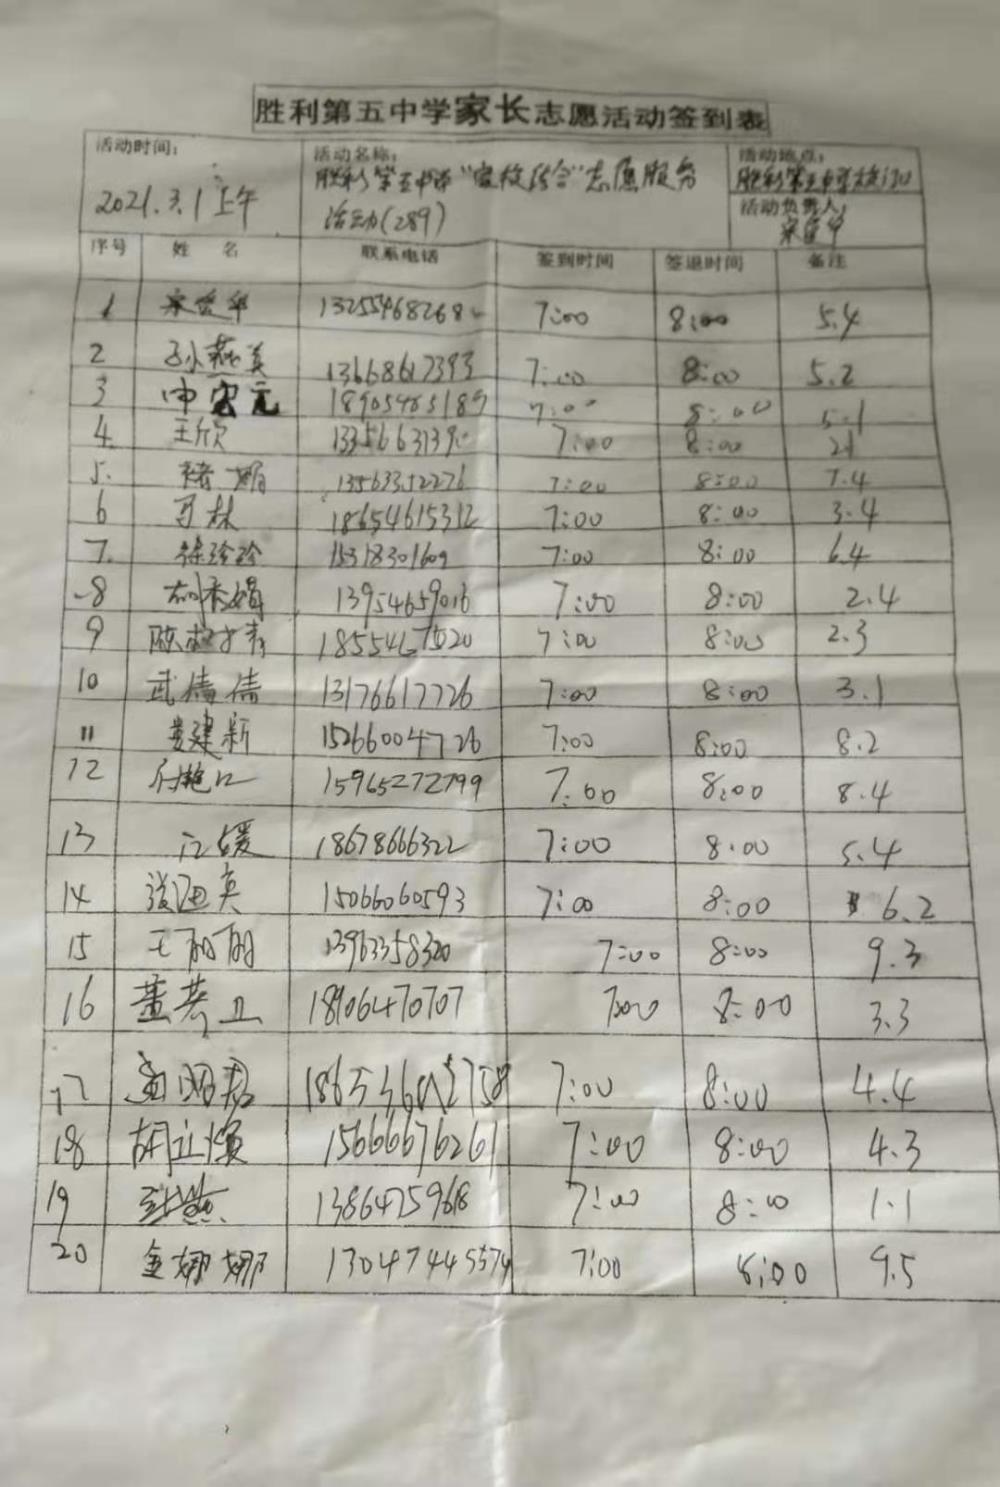 胜利第五中学家长志愿活动签到表
活动时间: 活动名称: 活动地点:
2021.3.1上午 胜利第五中学"家校结合"志愿服务 胜利第五中学校门口
活动(289) 活动负责人:
序号 姓 名 联系电话 签到时间 签退时间 备注
1 7:00 8:00 5.4
2 孙燕美 13668617393 7:00 8:00 5.2
3 18905465189 7:00 8:00 5.1
4. 王欣 7:00 8:00 2.1
5. 褚娟 13563352276 7:00 8:00 7.4
6 18654615312 7:00 8:00 3.4
7. 徐玲玲 15318301609 7:00 8:00 6.4
8 13954659016 7:00 8:00 2.4
9 7:00 8:00 2.3
10 武倩倩 13176617726 7:00 8:00 3.1
11 娄建新 15266004726 7:00 8:00 8.2
12 15965272799 7:00 8:00 8.4
13 江媛 18678666322 7:00 8:00 5.4
14 15066060593 7:00 8:00 6.2
15 王丽丽 13963358320 7:00 8:00 9.3
16 18906470707 7:00 8:00 3.3
17 7:00 8:00 4.4
18 胡立滨 15666676261 7:00 8:00 4.3
19 13864759618 7:00 8:00 1.1
20 金娜娜 13047445574 7:00 8:00 9.5